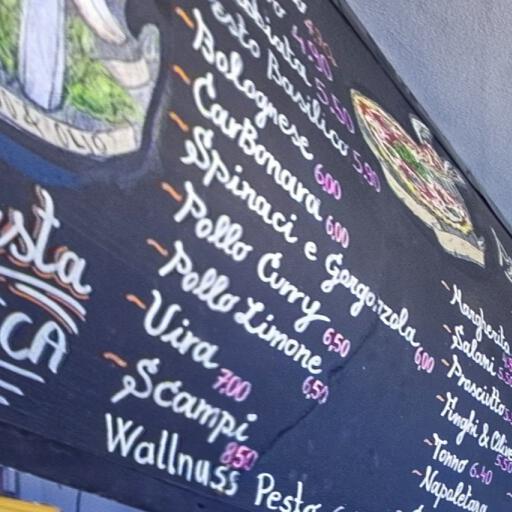 OLIO
sta
CA
4,90
5,50
Pesto Basilico 5,80
~ Bolognese 6,00
~ Carbonara 6,00
~ Spinaci e Gorgonzola 6,00
~ Pollo Curry 6,50
~ Pollo Limone 6,50
~ Vira 7,00
~ Scampi 8,50
Wallnuss Pesto
~ Margherita
~ Salami 5.50
~ Prosciutto 5.
~ Funghi & Olive 5.50
~ Tonno 6.40
~ Napoletana